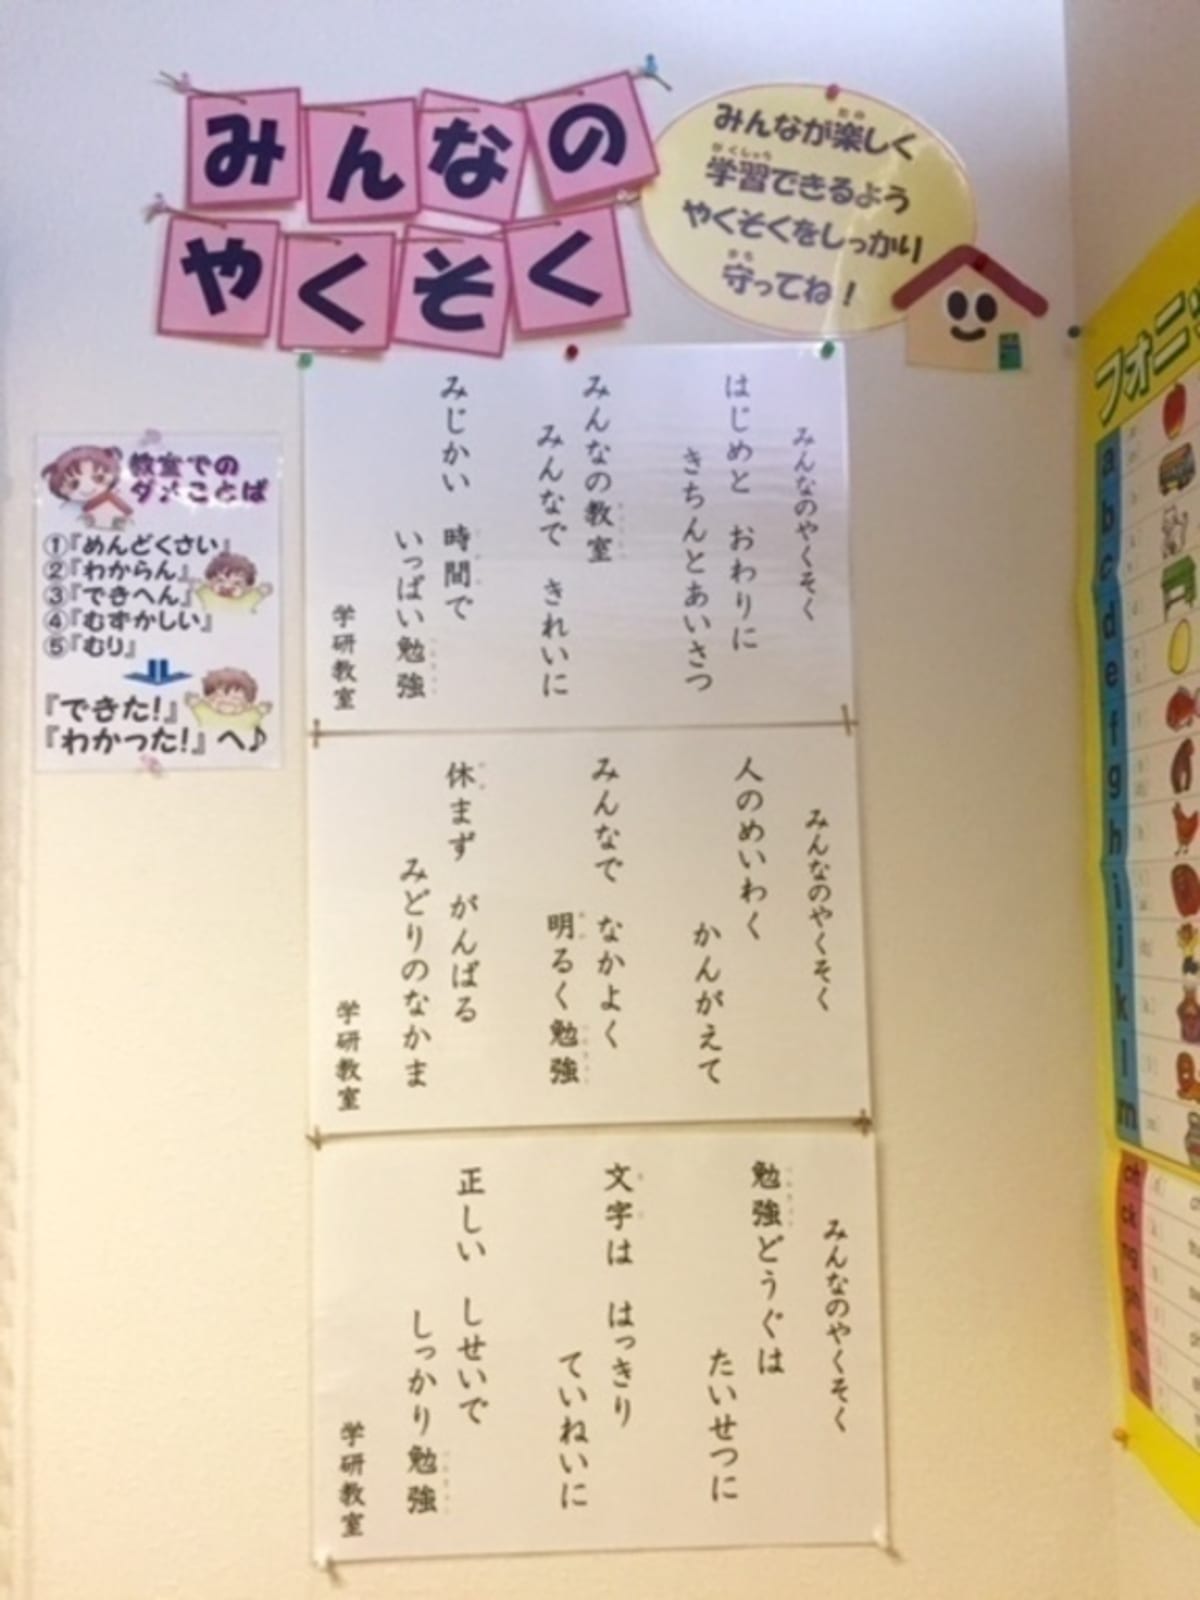 みんなの
やくそく
みんなが楽しく
学習できるよう
やくそくをしっかり
守ってね！
みんなのやくそく
はじめと　おわりに
きちんとあいさつ
みんなの教室
みんなで　きれいに
みじかい　時間で
いっぱい勉強
学研教室
みんなのやくそく
人のめいわく
かんがえて
みんなで　なかよく
明るく勉強
休まず　がんばる
みどりのなかま
学研教室
みんなのやくそく
勉強どうぐは
たいせつに
文字は　はっきり
ていねいに
正しい　しせいで
しっかり勉強
学研教室
教室での
ダメことば
①『めんどくさい』
②『わからん』
③『できへん』
④『むずかしい』
⑤『むり』
『できた!』
『わかった!』へ♪
フォニ
a
b
c
d
e
f
g
h
i
j
k
l
m
ch
ck
ng